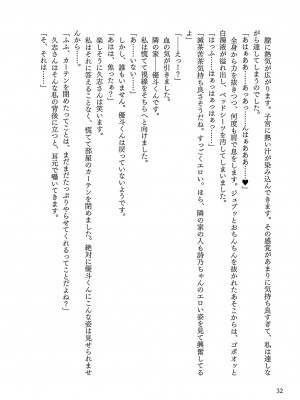 膣に熱が広がります。子宮に熱い汁が染み込んできます。その感覚があまりに気持ち良すぎて、私は達しな
がら達してしまうのでした。
「はっふ……んはぁああ……あっあっ……んはぁあああ……♥」
全身から力を抜きつつ、何度も肩で息をします。ジュプッとおちんちんを抜かれたあそこからは、ゴポオッと
白濁液が溢れ出し、ベッドシーツを汚してしまいました。
「はっふー……はぁっはぁっはぁっはぁ……」
「滅茶苦茶気持ち良さそうだね。すっごくエロい。ほら、隣の家の人も詩乃ちゃんのエロい姿を見て興奮してる
よ」
「――えっ!?」
血の気が引きました。
隣の家――優斗くんです。
私は慌てて視線をそちらへと向けました。
「あ……いない……」
しかし、誰もいません。優斗くんはいません。
「あはは、焦ったね?」
楽しそうに久志さんは笑います。
私はそれに答えることなく、慌てて部屋のカーテンを閉めました。絶対に優斗くんにこんな姿は見せられませ
ん。
「ふふ、カーテンを閉めたってことは、まだまだたっぷりやらせてくれるってことだよね?」
久志さんはそんな私の背後に立つと、耳元で囁いてきます。
「そ、それは……」
32